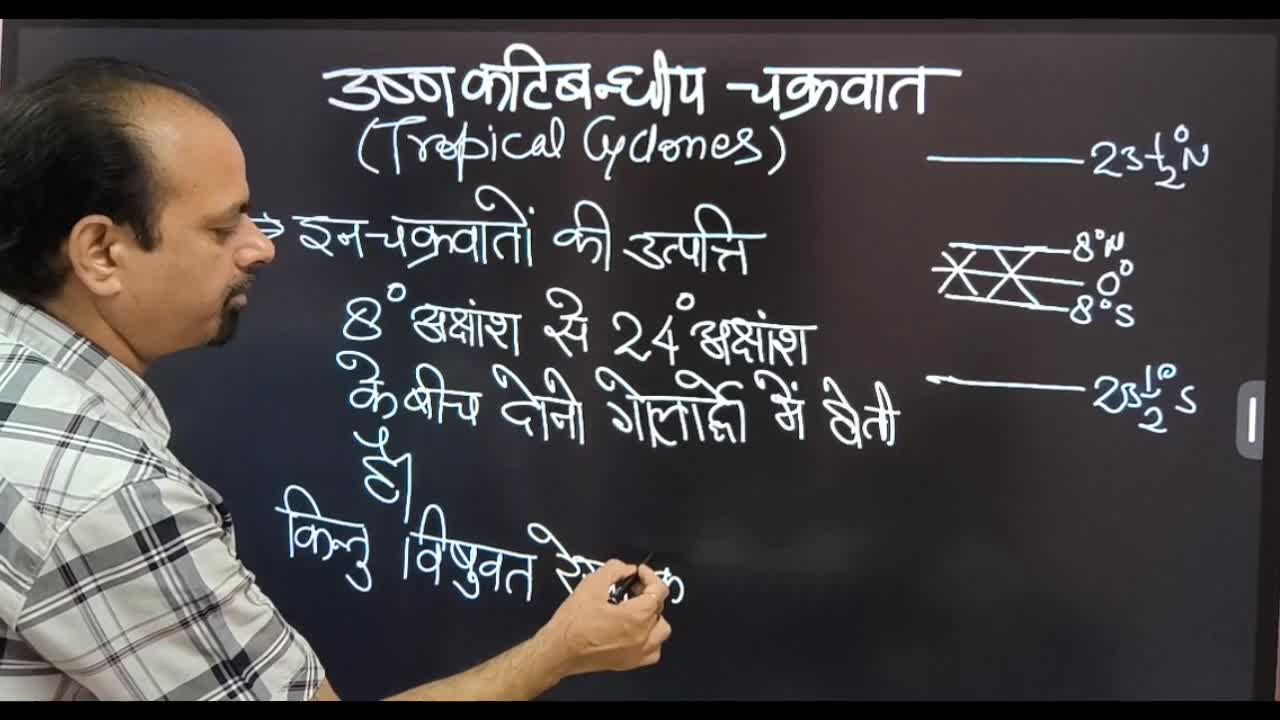 उष्ण कटिबन्धीय चक्रवात
(Tropical Cyclones)
⇒ इन चक्रवातों की उत्पत्ति
8° अक्षांश से 24° अक्षांश
के बीच दोनो गोलार्द्धो में होती
है।
किन्तु विषुवत
23½° N
8° N
0°
8° S
23½° S